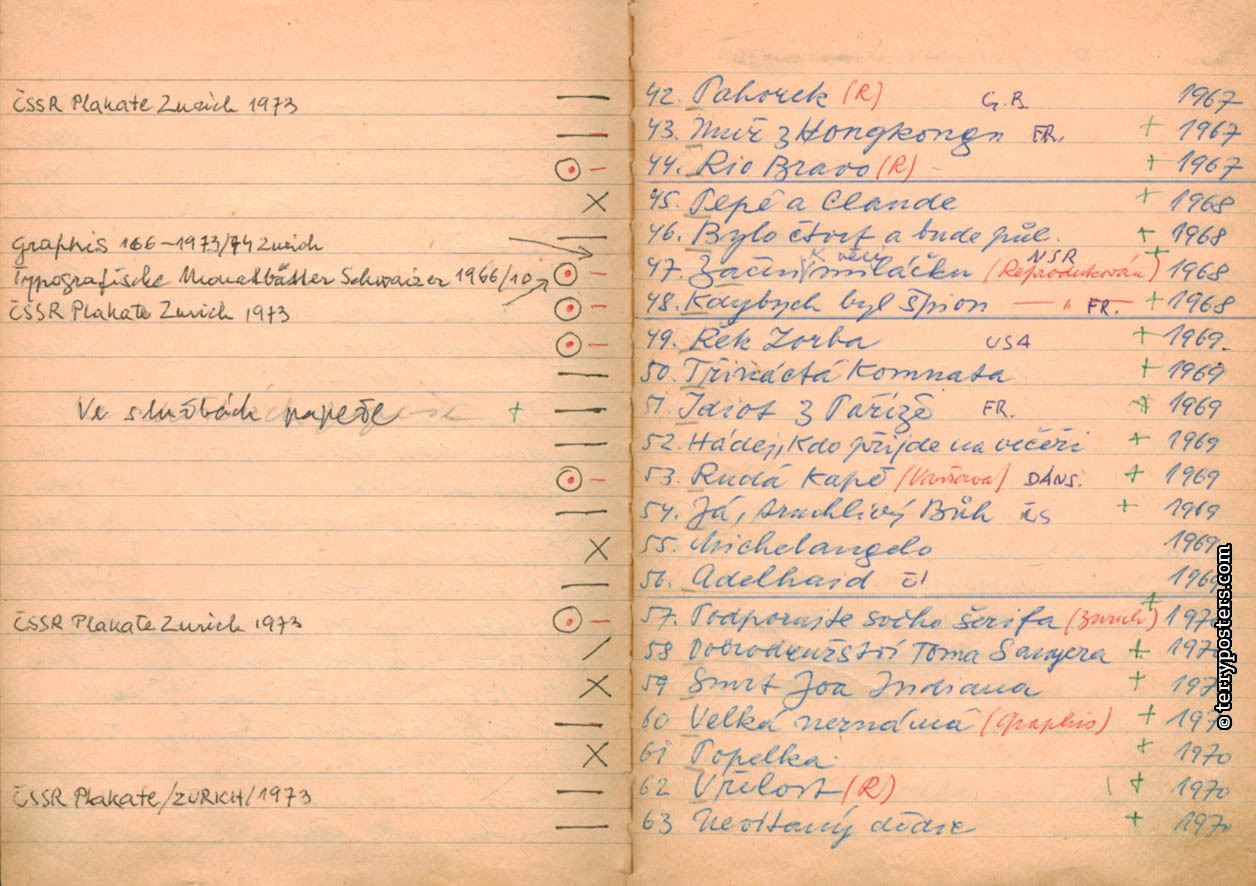 ČSSR Plakate Zurich 1973
graphis 166-1973/74 Zurich
Typografische Monatblätter Schweizer 1966/10
ČSSR Plakate Zurich 1973
Ve službách papeže +
ČSSR Plakate Zurich 1973
ČSSR Plakate/ZURICH/1973
42. Pahorek (R) G.B. 1967
43. Muž z Hongkongu FR. + 1967
44. Rio Bravo (R) + 1967
45. Pepé a Claude + 1968
46. Bylo čtvrt a bude půl. + 1968
47. Začni, miláčku (Reprodukován) NSR + 1968
48. Kdybych byl špion — " — FR. + 1968
49. Řek Zorba USA + 1969.
50. Třináctá Komnata + 1969
51. Idiot z Paříže FR. + 1969
52. Hádej, Kdo přijde na večeři + 1969
53. Rudá Kápě (Varšava) DÁNS. + 1969
54. Já, truchlivý Bůh ČS + 1969
55. Michelangelo 1969
56. Adelhaid čs 1969
57. Podporujte svého šerifa (Zurich) + 1970
58 Dobrodružství Toma Sawyera + 1970
59 Smrt Joa Indiana + 197
60 Velká neznámá (Graphis) + 197
61 Popelka + 1970
62 Vřelost (R) + 1970
63 Nevítaný dědic + 1970
© terryposters.com